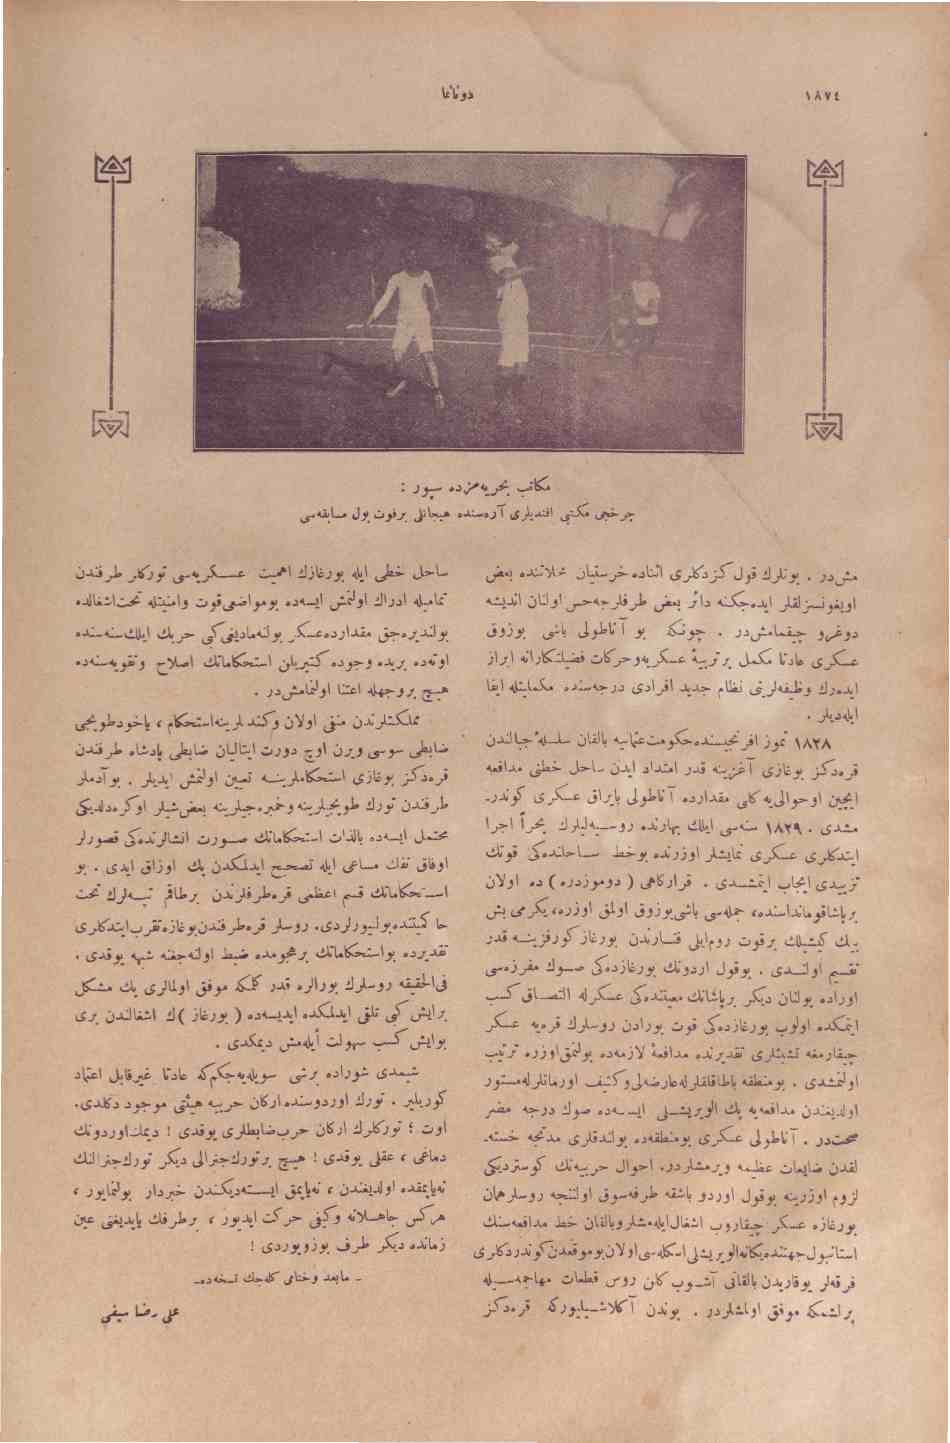 ١٨٧٤
دونانما
مكاتب بحريه‌مزده سپور :
چرخجى مكتبى افنديلرى آره‌سنده هيجانلى برفوت بول مسابقه‌سى
مش‌در . بونلرك قول كزدكلرى اثناده خرستيان محلاتنده بعض
اويغونسزلقلر ايده‌جكنه دائر بعض طرفلرجه‌حس اولنان انديشه
دوغرو چيقمامش‌در . چونكه بو آناطولى باشى بوزوق
عسكرى عادتا مكمل بر تربيۀ عسكريه‌وحركات فضيلتكارانه ابراز
ايده‌رك وظيفه‌لرينى نظام جديد افرادى درجه‌سنده مكملیتله ايفا
ايله‌ديلر .
١٨٢٨ تموز افرنجيسنده‌حكومت‌عثمانيه بالقان سلسلۀ جبالندن
قره‌دكز بوغازى آغزينه قدر امتداد ايدن ساحل خطنى مدافعه
ايچين اوحوالى‌يه كافى مقدارده آناطولى بايراق عسكرى كوندر-
مشدى . ١٨٢٩ سنه‌سى ايلك بهارنده روسيه‌ليلرك بحراً اجرا
ايتدكلرى عسكرى نمايشلر اوزرنده بوخط ساحلنده‌كى قوتك
تزييدى ايجاب ايتمشدى . قراركاهى ( دوموزدره ) ده اولان
برپاشاقومانداسنده، جمله‌سى باشى‌بوزوق اولمق اوزره، يكرمى بش
بيك كيشيلك برقوت روم‌ايلى فنارندن بورغاز كورفزينه قدر
تقسيم اولندى . بوقول اردونك بورغازده‌كى صوك مفرزه‌سى
اوراده بولنان ديكر برپاشانك معيتنده‌كى عسكرله التصاق كسب
ايتمكده اولوب بورغازده‌كى قوت بورادن روسلرك قره‌يه عسكر
چيقارمغه تشبثلرى تقديرنده مدافعۀ لازمه‌ده بولنمق‌اوزره ترتيب
اولنمشدى . بومنطقه باطاقلقلرله‌عارضه‌لى‌وكثيف اورمانلرله‌مستور
اولديغندن مدافعه‌يه پك الويريشلى ايسه‌ده صوك درجه مضر
صحت‌در . آناطولى عسكرى بومنطقه‌ده بولندقلرى مدتجه خسته-
لقدن ضايعات عظيمه ويرمشلردر. احوال حربيه‌نك كوسترديكى
لزوم اوزرينه بوقول اوردو باشقه طرفه‌سوق اولنجه روسلرهمان
بورغازه عسكر چيقاروب اشغال‌ايله‌مشلروبالقان خط مدافعه‌سنك
استانبول‌جهتنده‌يكانه‌الويريشلى‌اسكله‌سى‌اولان‌بوموقعدن‌كوندردكلرى
فرقه‌لر يوقاريدن بالقانى آشوب كلن روس قطعات مهاجمه‌سيله
برلشمكه موفق اولمشلردر . بوندن آكلاشيليوركه قره‌دكز
ساحل خطى ايله بورغازك اهميت عسكريه‌سى توركلر طرفندن
تماميله ادراك اولنمش ايسه‌ده بومواضعى‌قوت وامنيتله تحت‌اشغالده
بولنديره‌جق مقدارده‌عسكر بولنه‌ماديغى‌كبى حربك ايلك‌سنه‌سنده
اوته‌ده بريده وجوده كتيريلن استحكاماتك اصلاح وتقويه‌سنه‌ده
هيچ بروجهله اعتنا اولنمامش‌در .
مملكتلرندن منفى اولان وكندلرينه‌استحكام ، ياخودطوپجى
ضابطى سوسى ويرن اوچ دورت ايتاليان ضابطى پادشاه طرفندن
قره‌دكز بوغازى استحكاملرينه تعيين اولنمش ايديلر . بوآدملر
طرفندن تورك طوپجيلرينه وخمبره‌جيلرينه بعض‌شيلر اوكره‌دلديكى
محتمل ايسه‌ده بالذات استحكاماتك صورت انشالرنده‌كى قصورلر
اوفاق تفك مساعى ايله تصحيح ايدلمكدن پك اوزاق ايدى . بو
استحكاماتك قسم اعظمى قره‌طرفلرندن برطاقم تپه‌لرك تحت
حاكميتنده‌بولنيورلردى. روسلر قره‌طرفندن‌بوغازه‌تقرب‌ايتدكلرى
تقديرده بواستحكاماتك برهجومده ضبط اولنه‌جغنه شبهه يوقدى .
فى‌الحقيقه روسلرك بورالره قدر كلمكه موفق اولمالرى پك مشكل
برايش كبى تلقى ايدلمكده ايديسه‌ده ( بورغاز )ك اشغالندن برى
بوايش كسب سهولت ايله‌مش ديمكدى .
شيمدى شوراده برشى سويله‌يه‌جكم‌كه عادتا غيرقابل اعتماد
كوريلير . تورك اوردوسنده اركان حربيه هيئتى موجود دكلدى.
اوت ؛ توركلرك اركان حرب‌ضابطلرى يوقدى ! ديمك‌اوردونك
دماغى ، عقلى يوقدى ! هيچ برتورك‌جنرالى ديكر تورك‌جنرالنك
نه‌ياپمقده اولديغندن ، نه‌ياپمق ايسته‌ديكندن خبردار بولنمايور ،
هركس جاهلانه وكيفى حركت ايديور ، برطرفك ياپديغنى عين
زمانده ديكر طرف بوزويوردى !
ـ مابعد وختامى كله‌جك نسخه‌ده ـ
على رضا سيفى